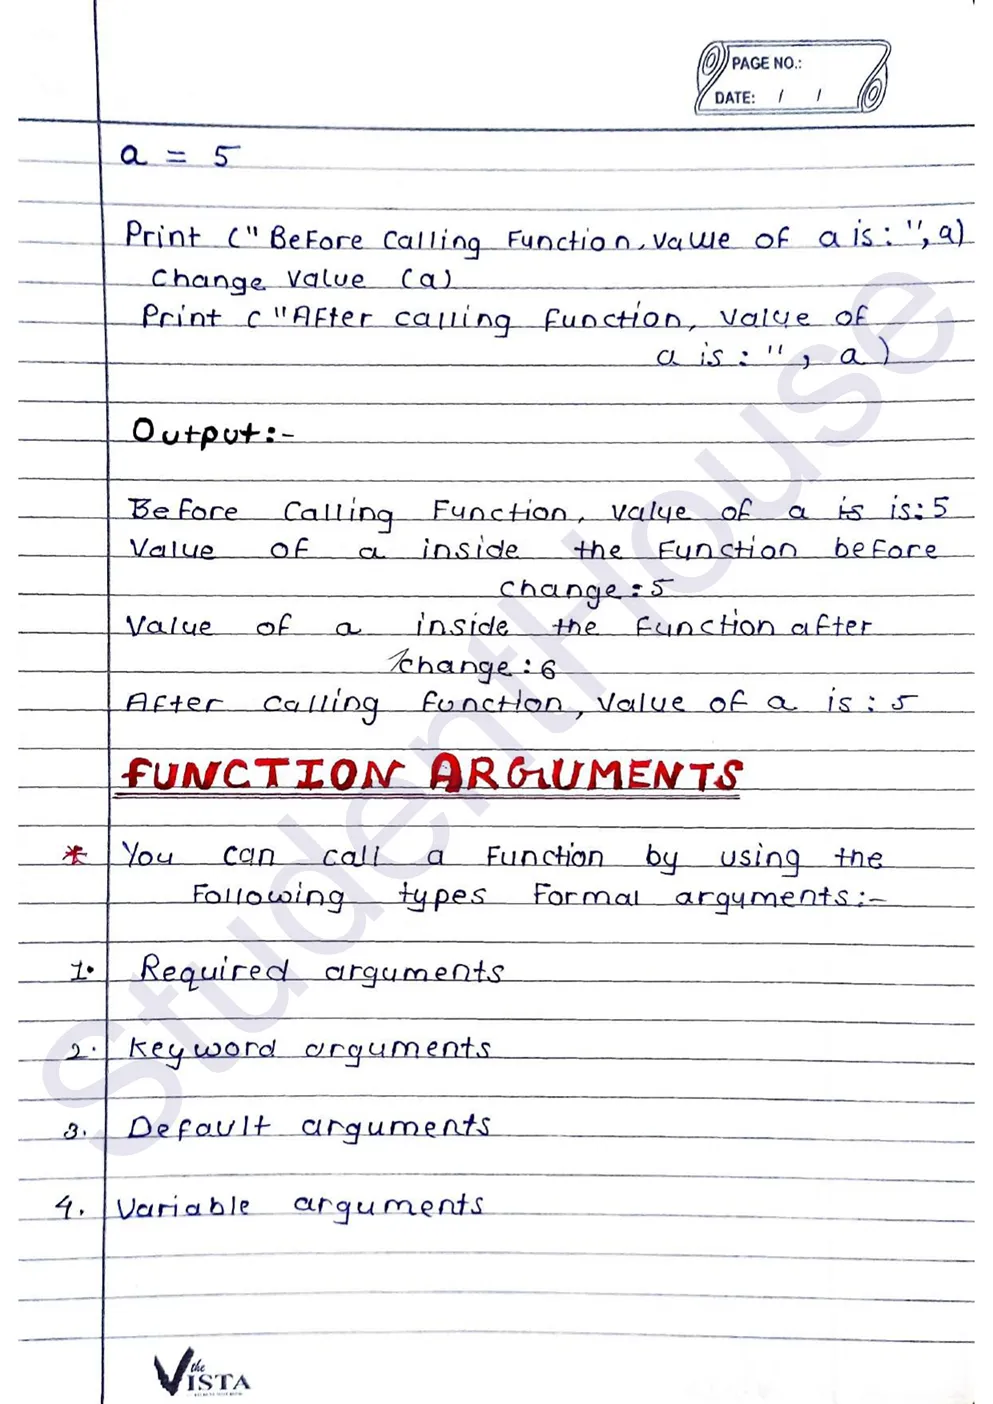 PAGE NO.:
DATE: / /
a = 5
Print ("Before Calling Function, value of a is: ", a)
Change Value (a)
Print ("After calling function, value of
a is: ", a)
Output:-
Before Calling Function, value of a is is: 5
Value of a inside the Function before
change: 5
Value of a inside the function after
change: 6
After calling function, Value of a is: 5
FUNCTION ARGUMENTS
* You can call a Function by using the
Following types Formal arguments:-
1. Required arguments
2. Keyword arguments
3. Default arguments
4. Variable arguments
StudentHouse
the
VISTA